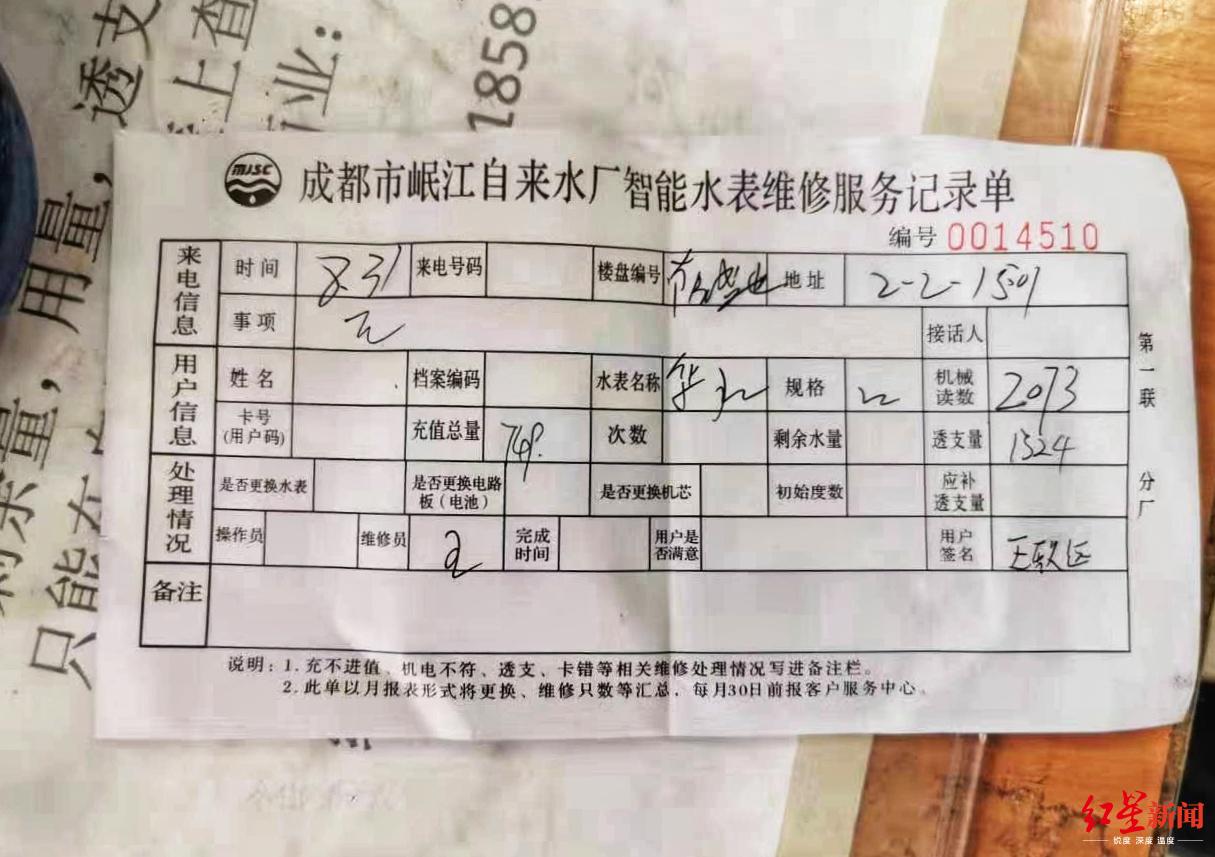 透支
上查
业：
1858
用量，
用量，
只能在
MJSC
成都市岷江自来水厂智能水表维修服务记录单
编号 0014510
来电信息 时间 8.31 来电号码 楼盘编号 地址 2-2-1501
事项 接话人
用户信息 姓名 档案编码 水表名称 规格 机械读数 2073
卡号(用户码) 充值总量 749. 次数 剩余水量 透支量 1324
处理情况 是否更换水表 是否更换电路板（电池） 是否更换机芯 初始度数 应补透支量
操作员 维修员 完成时间 用户是否满意 用户签名
备注
第一联 分厂
说明：1.充不进值、机电不符、透支、卡错等相关维修处理情况写进备注栏。
2.此单以月报表形式将更换、维修只数等汇总，每月30日前报客户服务中心。
红星新闻
锐度 深度 温度